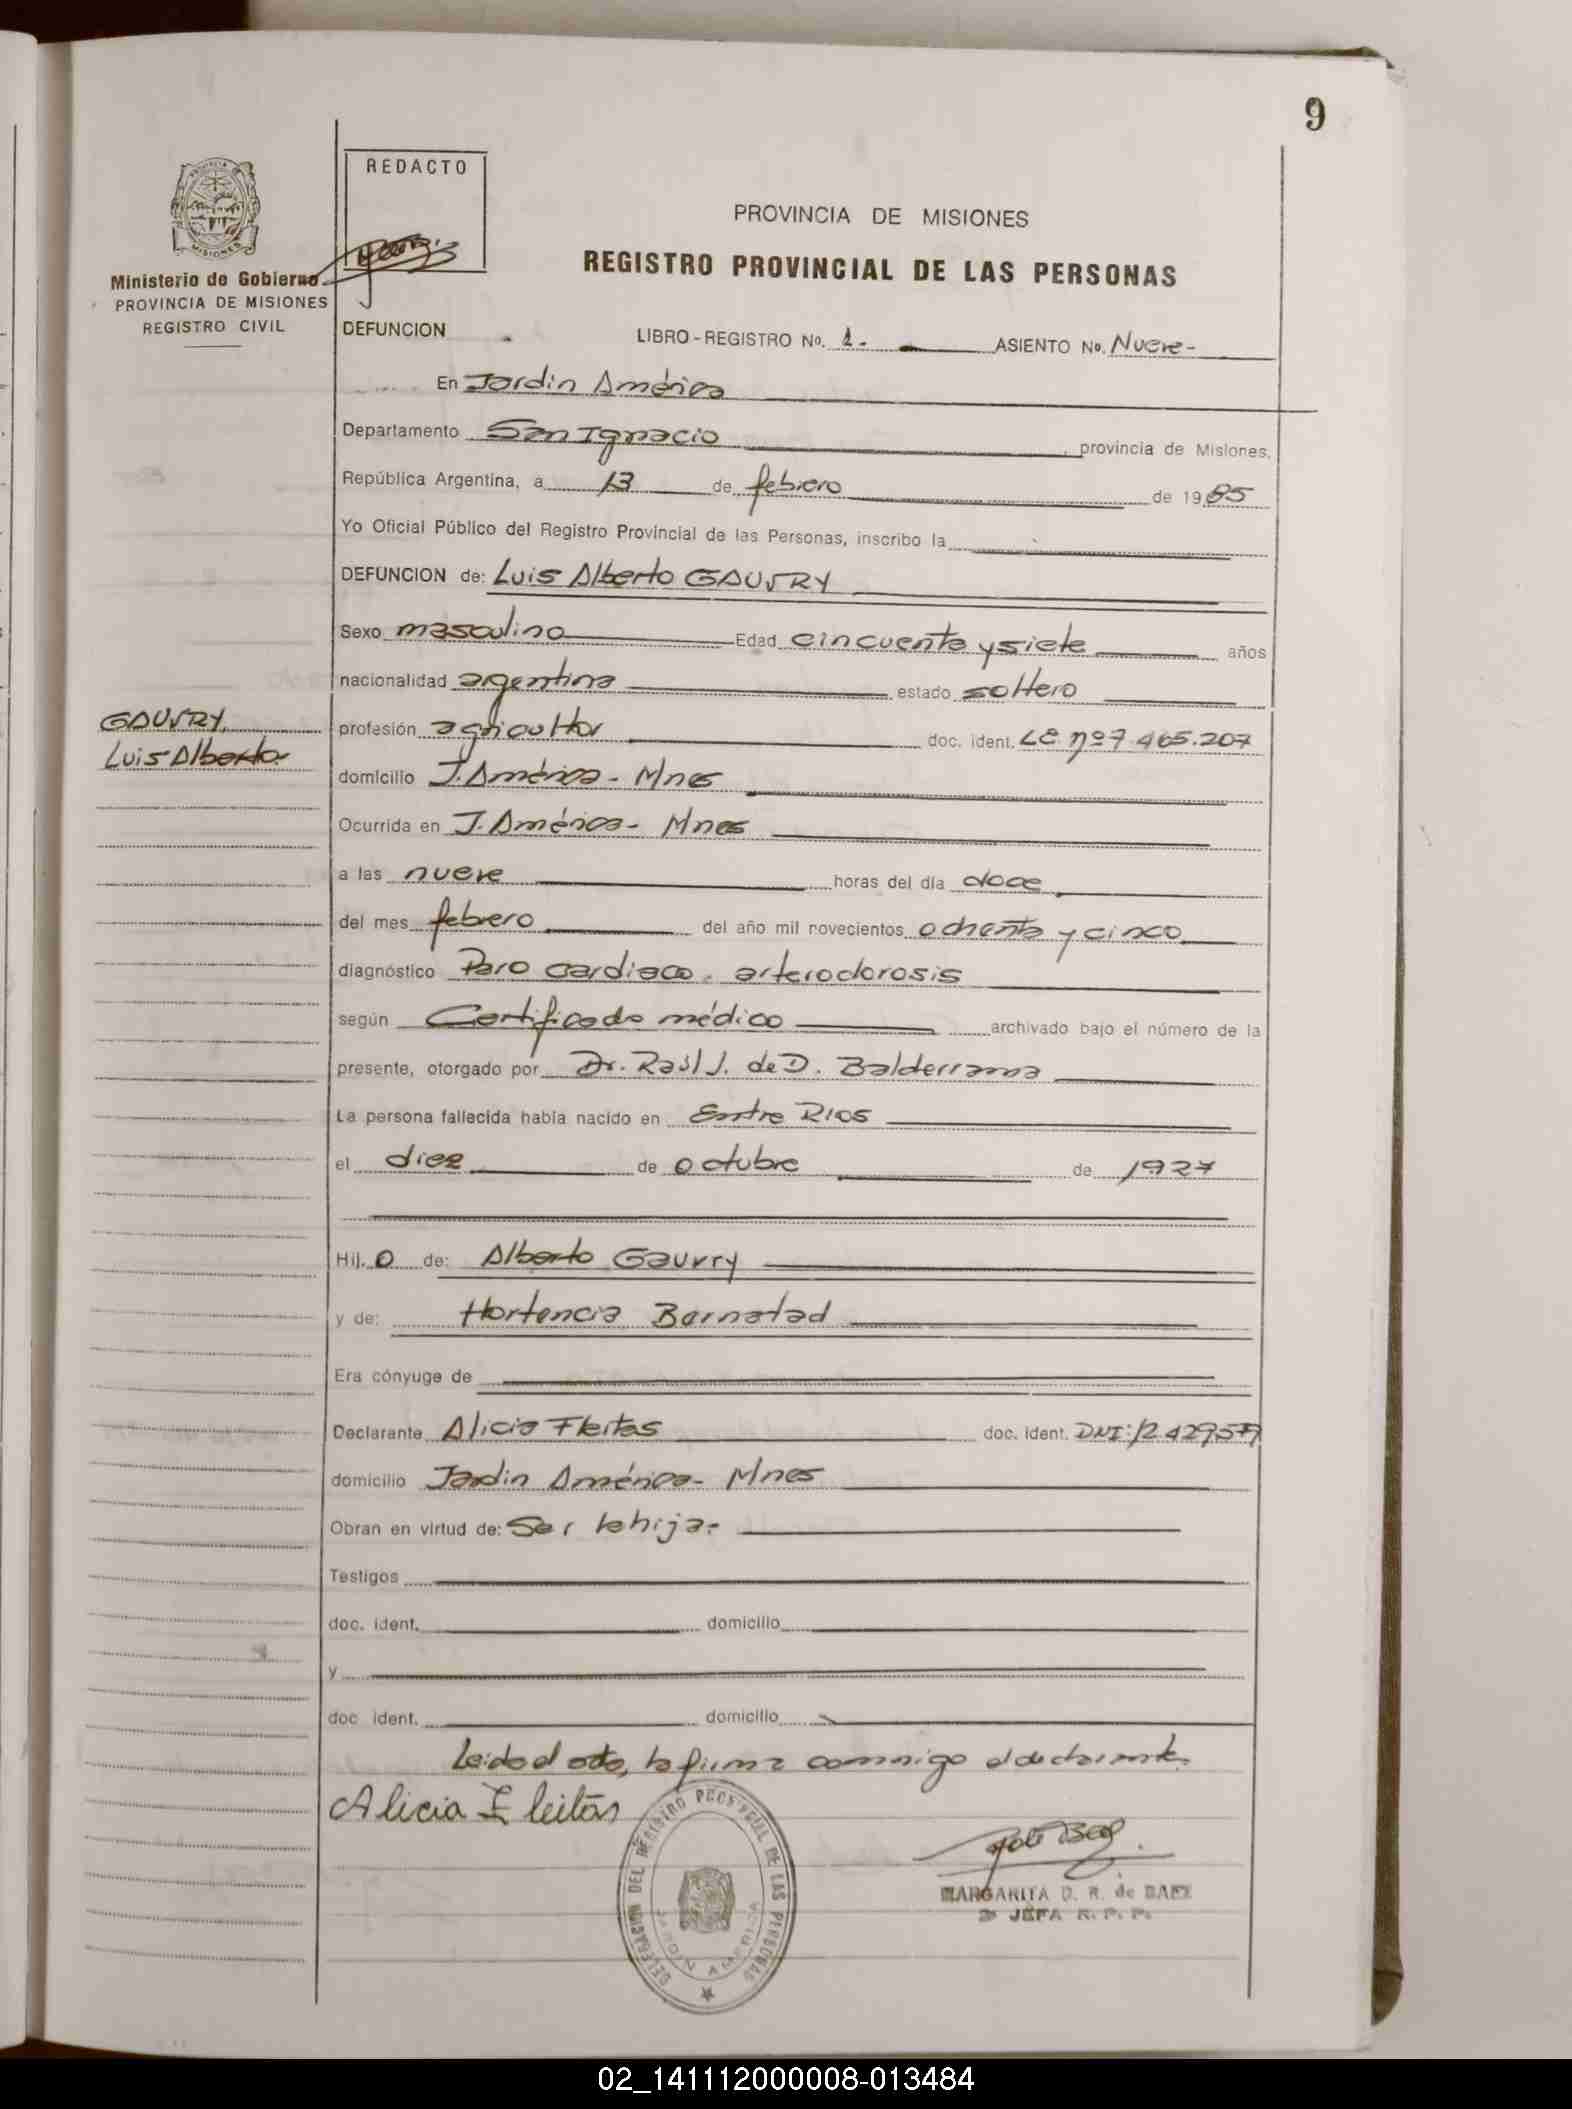 9
REDACTO
Ministerio de Gobierno
PROVINCIA DE MISIONES
REGISTRO CIVIL
PROVINCIA DE MISIONES
REGISTRO PROVINCIAL DE LAS PERSONAS
DEFUNCION LIBRO-REGISTRO Nº. 1.- ASIENTO Nº. Nueve-
En Jardin América
Departamento San Ignacio, provincia de Misiones,
República Argentina, a 13 de febrero de 1985
Yo Oficial Público del Registro Provincial de las Personas, inscribo la
DEFUNCION de: Luis Alberto GAUVRY
Sexo masculino Edad cincuenta y siete años
nacionalidad argentina estado soltero
GAUVRY,
Luis Alberto
profesión agricultor doc. ident. LE. nº 7.465.207
domicilio J. América - Mnes
Ocurrida en J. América - Mnes
a las nueve horas del día doce
del mes febrero del año mil novecientos ochenta y cinco
diagnóstico Paro cardiaco. arteroclorosis
según Certificado médico archivado bajo el número de la
presente, otorgado por Dr. Raúl J. de D. Balderrama
La persona fallecida había nacido en Entre Rios
el diez de octubre de 1927
Hij. o de: Alberto Gauvry
y de: Hortencia Bernatad
Era cónyuge de
Declarante Alicia Fleitas doc. ident. DNI:
domicilio Jardin América - Mnes
Obran en virtud de: Ser la hija.-
Testigos
doc. ident. domicilio
y
doc. ident. domicilio
Leido el acta, la firma conmigo el declarante.
Alicia Fleitas
DELEGACION DEL REGISTRO PROVINCIAL DE LAS PERSONAS
JARDIN AMERICA
MARGARITA D. R. de BAEZ
JEFA R. P. P.
02_141112000008-013484